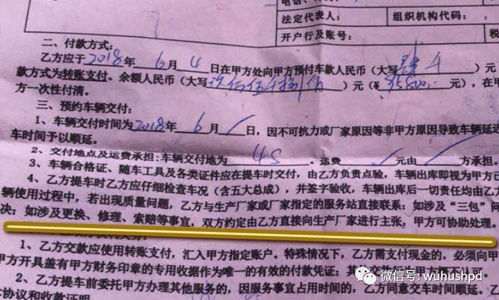 电话：
法定代表人： 组织机构代码：
开户行及账号： 税
二、付款方式：
乙方应于2018年6月4日在甲方处向甲方预付车款人民币（大写
款方式为转账支付。余额人民币（大写 ）元（¥ ）元，在
方一次性付清。
三、预约车辆交付：
1、车辆交付时间为2018年6月 日，因不可抗力或厂家原因等非甲方原因导致车辆延
车时间予以顺延。
2、交付地点及运费承担：车辆交付地为4S。运费 元由 方承担。
3、车辆合格证、随车工具及各类证件应在提车时交付，由乙方负责点验，车辆出库即视为甲方已
4、乙方提车时乙方应仔细检查车况（含五大总成），并签字验收，车辆出库后一切责任均由乙方
辆使用过程中，若出现质量问题，乙方与生产厂家或厂家指定的服务站直接联系；如涉及“三包”问
决；如涉及更换、修理、索赔等事宜，双方约定由乙方直接向生产厂家进行主张，甲方可协助处理。
1、乙方交款应使用转账支付，汇入甲方指定账户。特殊情况下，乙方需支付现金的，必须向甲
甲方开具盖有甲方财务印章的专用收据作为唯一的有效的付款凭证；
2、乙方提车前委托甲方办理其他服务的，因服务事宜占用时间的，乙方同意交车时间顺延。
协议和收款证明
微信号: wuhushpd